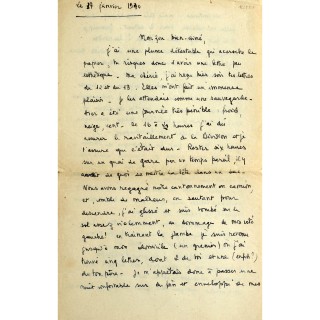 Le 17 janvier 1940
Mon Jou bien-aimé,
j'ai une plume détestable qui accroche le
papier. Tu risques donc d'avoir une lettre peu
esthétique. Ma chérie, j'ai reçu hier soir tes lettres
du 12 et du 13. Elles m'ont fait un immense
plaisir. Je les attendais comme une sauvegarde.
Hier a été une journée très pénible : froid
neige, vent. De 16 à heures j'ai dû
assurer le ravitaillement de la Division et je
t'assure que c'était dur. Rester six heures
sur un quai de gare par ce temps pareil, il y
avait de quoi se mettre la tête dans un sac.
Nous avons regagné notre cantonnement en camion
et, comble de malheur, en sautant pour
descendre, j'ai glissé et suis tombé sur le
sol assez violemment, au dommage de mon côté
gauche ! en traînant la jambe je suis revenu
jusqu'à mon domicile (un grenier) où j'ai
trouvé cinq lettres, dont 2 de toi et une (enfin !)
de ton père. Je m'apprêtais donc à passer une
nuit confortable sur du foin et enveloppé de mes